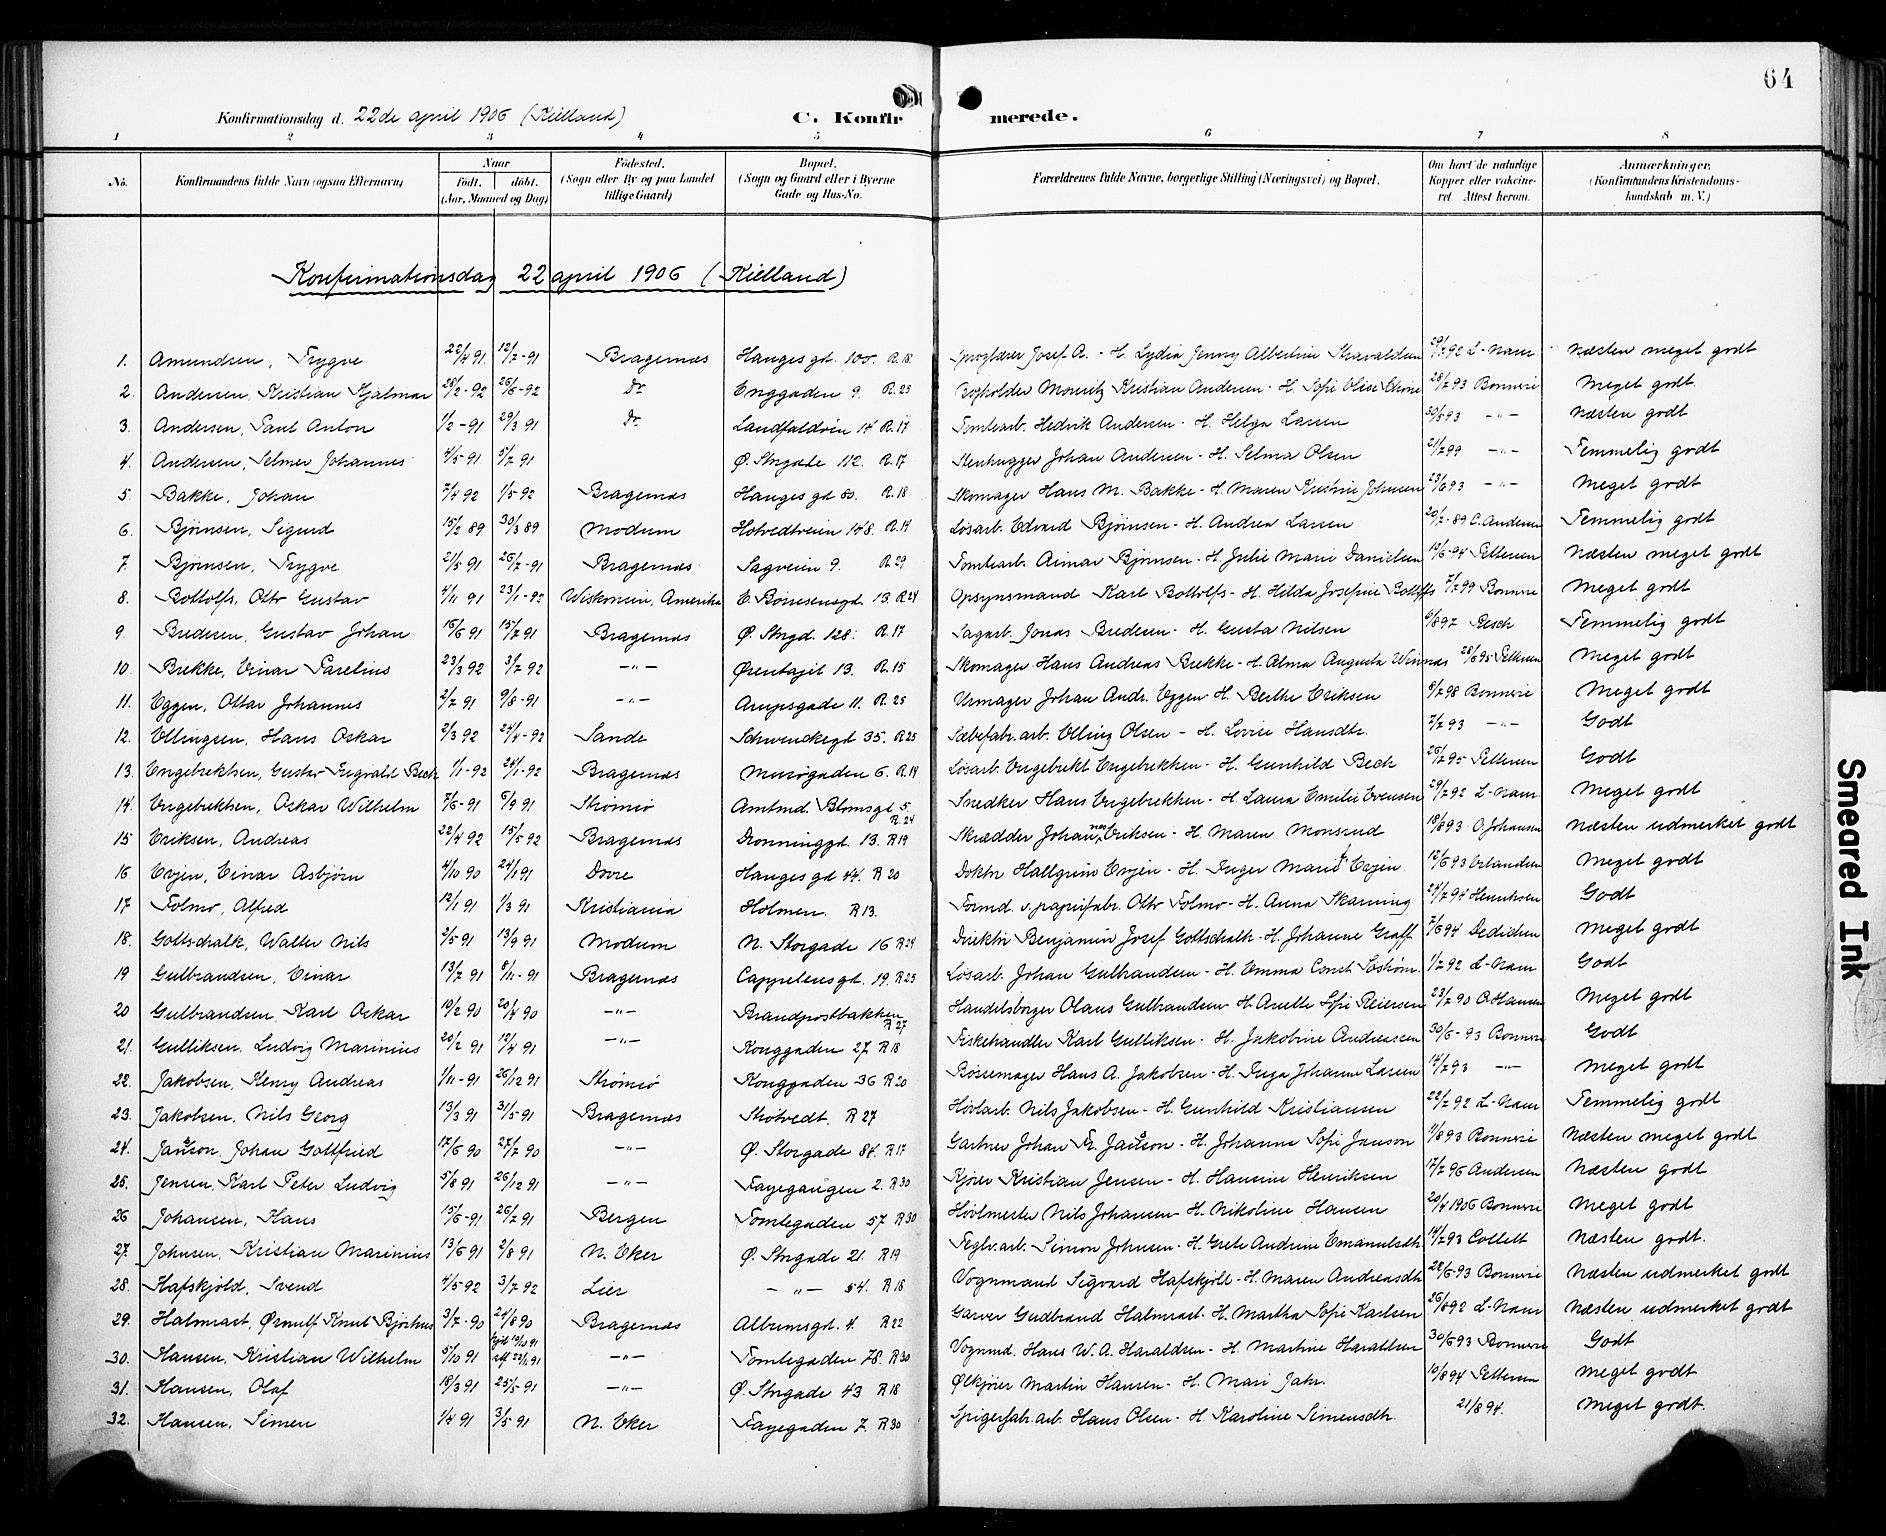 64
Konfirmationsdag d. 22de april 1906 (Kielland)
C. Konfirmerede.
1 2 3 4 5 6 7 8
No. Konfirmandens fulde Navn (ogsaa Efternavn) Naar født. døbt. (Aar, Maaned og Dag) Fødested. (Sogn eller By og paa Landet tillige Gaard) Bopæl. (Sogn og Gaard eller i Byerne Gade og Hus-No. Forældrenes fulde Navne, borgerlige Stilling (Næringsvei) og Bopæl. Om havt de naturlige Kopper eller vakcineret Attest herom. Anmærkninger. (Konfirmandens Kristendomskundskab m. V.)
Konfirmationsdag 22 april 1906 (Kielland)
1. Amundsen, Trygve 22/4 91 12/7-91 Bragernæs Hauges gd. 100. R.18 Josef A. - H. Lydia Jenny Albertine 29/7 92 L-Nam Næsten meget godt
2. Andersen, Kristian Hjalmar 28/2-92 26/6-92 do Enggaden 9. R.25 Bogholder Mouritz Kristian Andersen - H. Sofie Elise 28/7 93 Bonnevie Meget godt
3. Andersen, Paul Anton 1/2-91 29/3 91 do Landfaldveien 14 R.17 Tomtearb. Hedvik Andersen - H. Helga Larsen 30/5 93 -"- Næsten godt
4. Andersen, Selmer Johannes 4/5-91 5/7 91 Ø. Strgade 112. R.17 Stenhugger Johan Andersen - H. Selma Olsen 21/7 99 -"- Temmelig godt
5 Bakke, Johan 7/4 92 1/5-92 Bragernæs Hauges gd 80. R.18 Skomager Hans M. Bakke - H. Maren Kristine Johnsen 23/6 93 -"- Meget godt
6. Bjørnsen, Sigurd 15/2 89 30/3 89 Modum Hotvedtveien 148. R.14 Løsarb. Edvard Bjørnsen - H. Andrea Larsen 20/7-89 C. Andersen Temmelig godt
7. Bjørnsen, Trygve 21/5 91 26/7-91 Bragernæs Sagveien 9. R.29 Tomtearb. Aimar Bjørnsen - H. Julie Marie Danielsen 19/6-94 Pettersen Næsten meget godt
8. Bottolfs, Otto Gustav 4/11 91 23/1-92 Wiskonsin, Amerika E. Børresensgd. 13. R24 Opsynsmand Karl Bottolfs - H. Hilda Josefine Bottolfs 7/7 99 Bonnevie Meget godt
9. Bredesen, Gustav Johan 16/6 91 15/7 91 Bragernæs Ø. Strgd. 128. R.17 Sagarb. Jonas Bredesen - H. Gusta Nilsen 6/8 97 Resch Temmelig godt
10. Brekke, Einar Farelius 23/3 92 3/7 92 -"- Ørentajet 13. R.15 Skomager Hans Andreas Brekke - H. Alma Augusta Winnæs 28/6 95 Pettersen Meget godt
11. Eggen, Ottar Johannes 2/7 91 9/8-91 -"- Arupsgade 11. R.25 Urmager Johan Andr. Eggen - H. Berthe Eriksen 8/7 98 Bonnevie Meget godt
12. Ellingsen, Hans Oskar 2/3 92 24/4-92 Sande Schwenckegd. 35. R25 Sæbefabr.arb. Elling Olsen - H. Lovise Hansdtr. 7/7 93 -"- Godt
13. Engebrektsen, Gustav Ingvald Bech 1/1-92 24/1-92 Bragernæs Musøgaden 6. R.14 Løsarb. Engebrekt Engebrektsen - H. Gunhild Bech 26/7 95 Pettersen Godt
14. Engebrektsen, Oskar Wilhelm 7/6-91 6/9 91 Strømsø Amtmd. Blomsgd. 5. R.24 Snedker Hans Engebrektsen - H. Laura Emilie Evensen 29/7 92 L-Nam Meget godt
15 Eriksen, Andreas 22/4 92 15/5 92 Bragernæs Dronninggd. 13. R19 Skrædder Johannes Eriksen - H. Maren Monsrud 18/8 93 O. Johansen Næsten udmerket godt
16 Evjen, Einar Asbjørn 4/10 90 24/1 91 Dovre Hauges gd 44. R 20 Doktor Hallgrim Evjen - H. Inger Marie Evjen 12/6 93 Erlandsen Meget godt
17 Folmo, Alfred 12/1 91 1/3 91 Kristiania Holmen. R13. Formd. v. papirfabr. Otto Folmo - H. Anna Skanning 24/7 94 Henriksen Godt
18. Gottschalk, Walter Nils 2/5 91 13/9 91 Modum N. Storgade 16 R24 Direktør Benjamin Josef Gottschalk - H. Johanne Graff 7/6 94 Dedichen Meget godt
19 Gulbrandsen, Einar 13/7 91 8/11-91 Bragernæs Cappelensgd. 19. R25 Løsarb. Johan Gulbrandsen - H. Emma Const. 1/7 92 L-Nam Godt
20 Gulbrandsen, Karl Oskar 10/2 90 20/4 90 -"- Brandpostbakken R27 Handelsborger Olaus Gulbrandsen - H. Anette Sofie Reiersen 23/7 90 O. Hansen Meget godt
21. Gulliksen, Ludvig Marinius 20/2 91 12/4 91 -"- Konggaden 27. R18 Fiskehandler Karl Gulliksen - H. Jakobine Andreassen 30/6-93 Bonnevie Godt
22. Jakobsen, Henry Andreas 1/11-91 26/12 91 Strømsø Konggaden 36 R20 Børsemager Hans A. Jakobsen - H. Inga Johanne Larsen 14/7 93 -"- Meget godt
23. Jakobsen, Nils Georg 13/3 91 31/5-91 Bragernæs Skotvedt. R27 Høvlarb. Nils Jakobsen - H. Gunhild Kristiansen 22/7 92 L-Nam Temmelig godt
24. Janson, Johan Gottfried 17/6 90 27/7 90 -"- Ø. Storgade 84. R17 Gartner Johan Fr. Janson - H. Johanna Sofie Janson 11/8 93 Bonnevie Næsten meget godt
25. Jensen, Karl Peter Ludvig 5/8 91 26/12 91 -"- Fayegangen 2. R30 Kjører Kristian Jensen - H. Hansine Henriksen 17/7 96 Andersen Næsten godt
26 Johansen, Hans 15/6-91 26/7 91 Bergen Tomtegaden 57 R30 Høvlmester Nils Johansen - H. Nikoline Hansen 20/4 1906 Bonnevie Meget godt
27. Johnsen, Kristian Marinius 13/6 91 2/8 91 N. Eker Ø. Strgade 21. R19 Teglv.arb. Simon Johnsen - H. Grete Andrine Emanuelsdtr 14/7 93 Collett Næsten godt.
28. Hafskjold, Svend 4/5 92 3/7 92 Lier -"- 54. R18 Vognmand Sigvard Hafskjold - H. Maren Andreasdtr 22/6 93 Bonnevie Næsten udmerket godt
29. Halmrast, Ørnulf Knut Bjørhus 3/7-90 24/8 90 Bragernæs Albumsgd. 4. R22 Garver Gudbrand Halmrast - H. Martha Sofie Karlsen 26/8 92 L-Nam Næsten udmerket godt
30. Hansen, Kristian Wilhelm 5/10 91 hjdt 10/10 91 stf 22/11 91 -"- Tomtegaden 78. R30 Vognmd. Hans W. A. Haraldsen - H. Martine Haraldsen 30/6 93 Bonnevie Godt
31. Hansen, Olaf 18/3 91 25/5-91 -"- Ø. Strgade 43 R18 Ølkjører Martin Hansen - H. Mari Jahr. 10/8 94 Pettersen Meget godt
32. Hansen, Simen 1/4 91 3/5 91 N. Eker Fayegaden 7. R30 Spigerfabr.arb. Hans Olsen - H Karoline Simensdtr. 21/8 94. Meget godt.
Smeared Ink